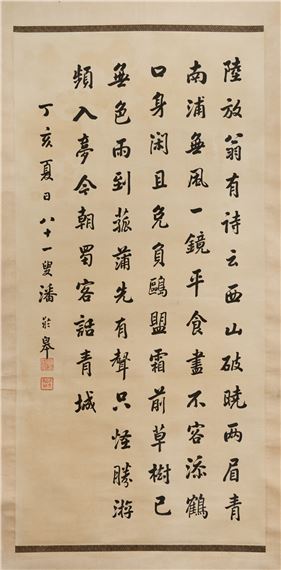 陸放翁有詩云西山破曉兩眉青
南浦無風一鏡平食盡不容添鶴
口身閑且免負鷗盟霜前草樹已
無色雨到菰蒲先有聲只怪勝游
頻入夢今朝蜀客話青城
丁亥夏日八十一叟潘龄皋